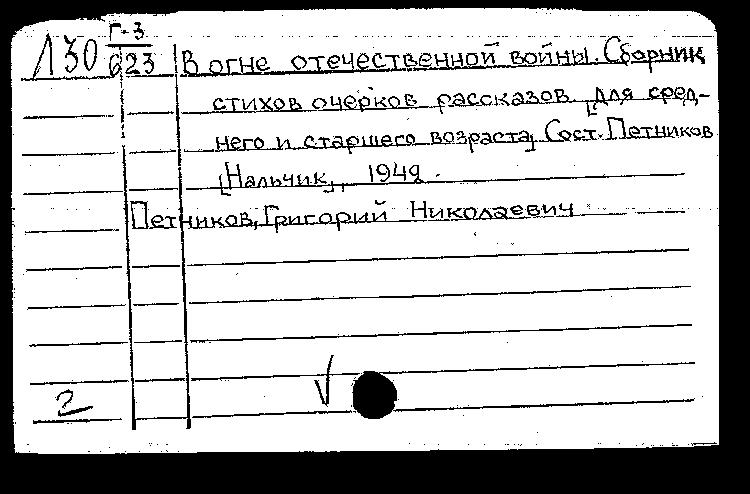 Г-3
Л30 623 В огне отечественной войны. Сборник
стихов очерков рассказов [Для сред-
него и старшего возраста] Сост. Петников
[Нальчик], 1942.
Петников, Григорий Николаевич
2